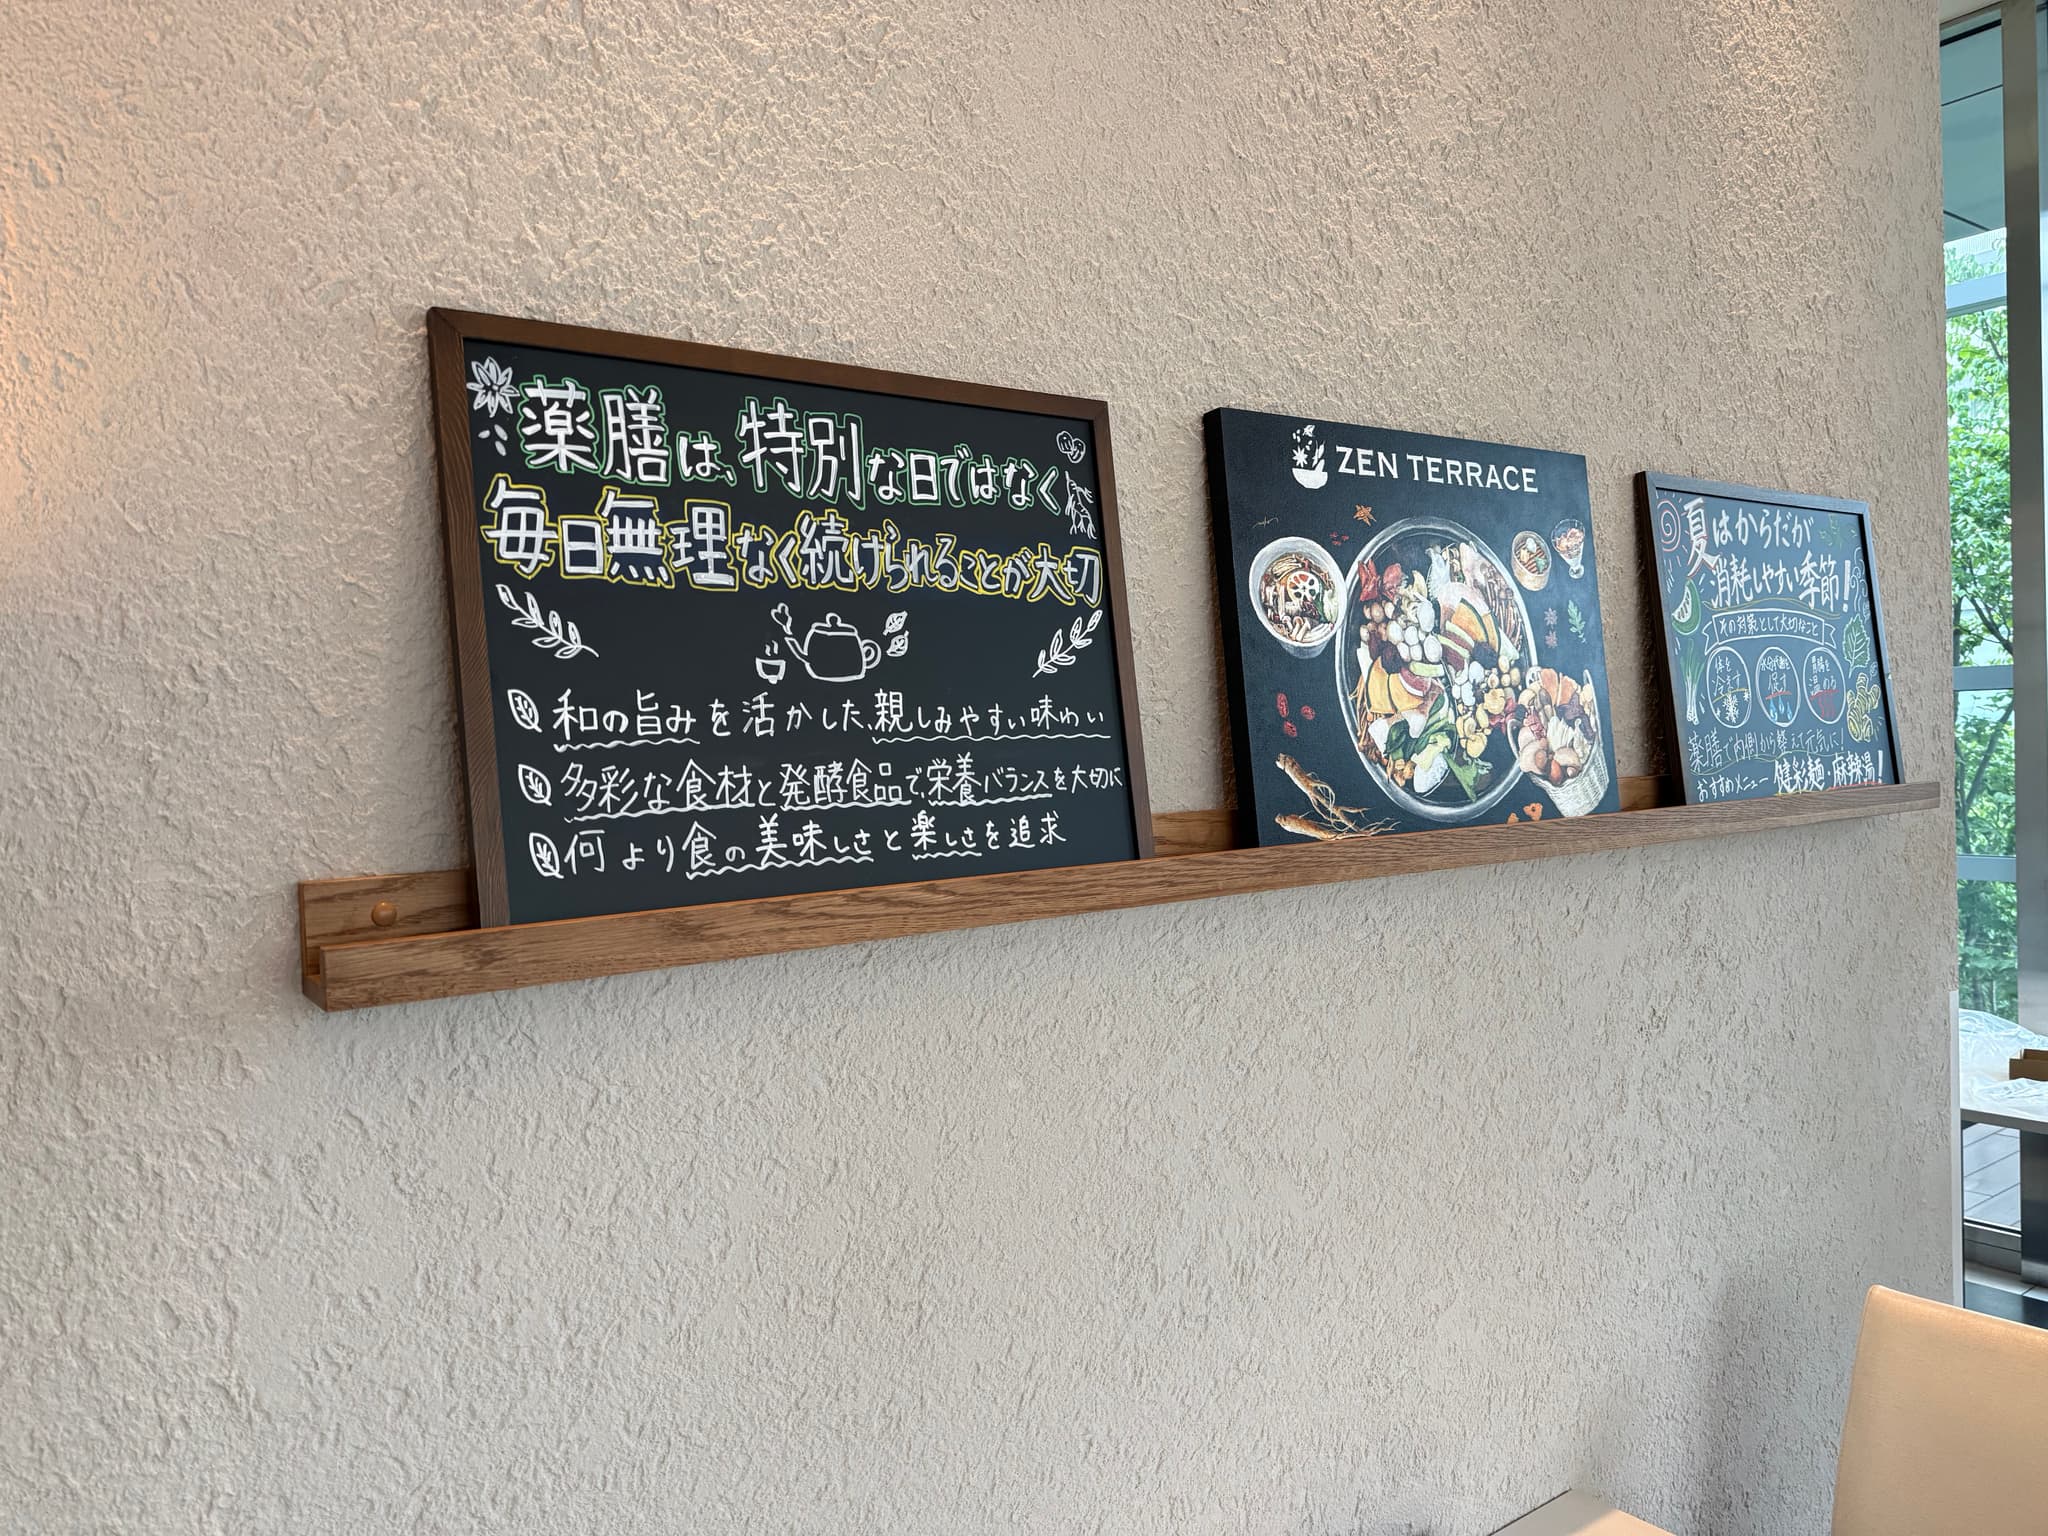 薬膳は、特別な日ではなく
毎日無理なく続けられることが大切
和の旨みを活かした、親しみやすい味わい
多彩な食材と発酵食品で、栄養バランスを大切に
何より食の美味しさと楽しさを追求
ZEN TERRACE
夏はからだが
消耗しやすい季節!
その対策として大切なこと
体を
冷ます
水分代謝を
促す
胃腸を
温める
薬膳で内側から整えて元気に!
おすすめメニュー 健彩麺・麻辣湯!